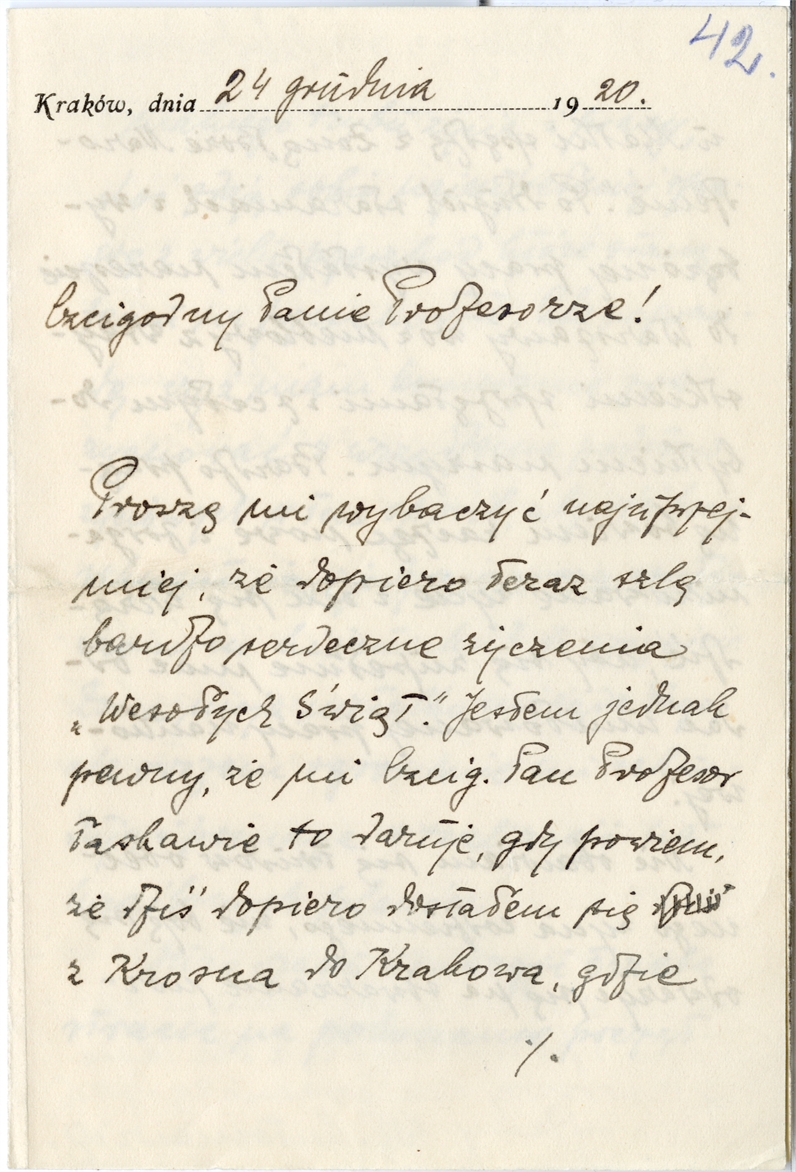 42.
Kraków, dnia 24 grudnia 1920.
Czcigodny Panie Profesorze!
Proszę mi wybaczyć najuprzej-
miej, że dopiero teraz szlę
bardzo serdeczne życzenia
„Wesołych Świąt." Jestem jednak
pewny, że mi Czcig. Pan Profesor
łaskawie to daruje, gdy powiem,
że dziś dopiero dostałem się
z Krosna do Krakowa, gdzie
./.